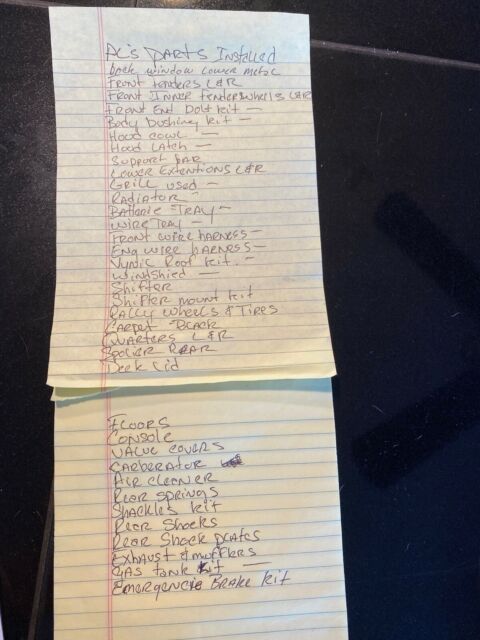 AL'S PARTS Installed
Deck window Lower metal
Front fenders L&R
Front Inner fender wheels L&R
Front End Bolt kit —
Body bushing kit —
Hood cowl —
Hood Latch —
Support bar
Lower Extentions L&R
Grill used —
Radiator —
Batterie TRAY —
Wire TRAY —
Front wire harness —
Eng wire harness —
Vynic Roof kit. —
Windshied —
Shifter
Shifter mount kit
Rally Wheels & Tires
Carpet Black
Quarters L&R
Spolier Rear
Deck Lid
Floors
Console
Value covers
Carberator
Air cleaner
Rear Springs
Shackles kit
Rear Shocks
Rear Shock plates
Exhaust & mufflers
Gas tank kit —
Emergencie Brake kit